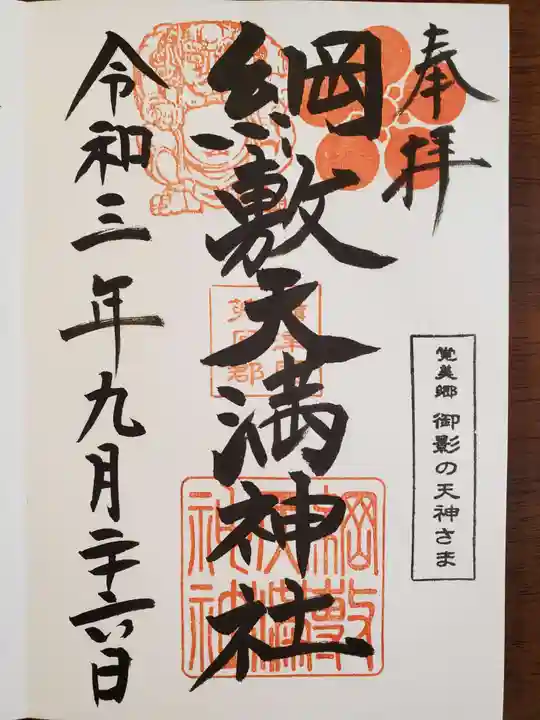 奉拝
覚美郷 御影の天神さま
綱敷天満神社
綱敷天満神社
令和三年九月二十六日